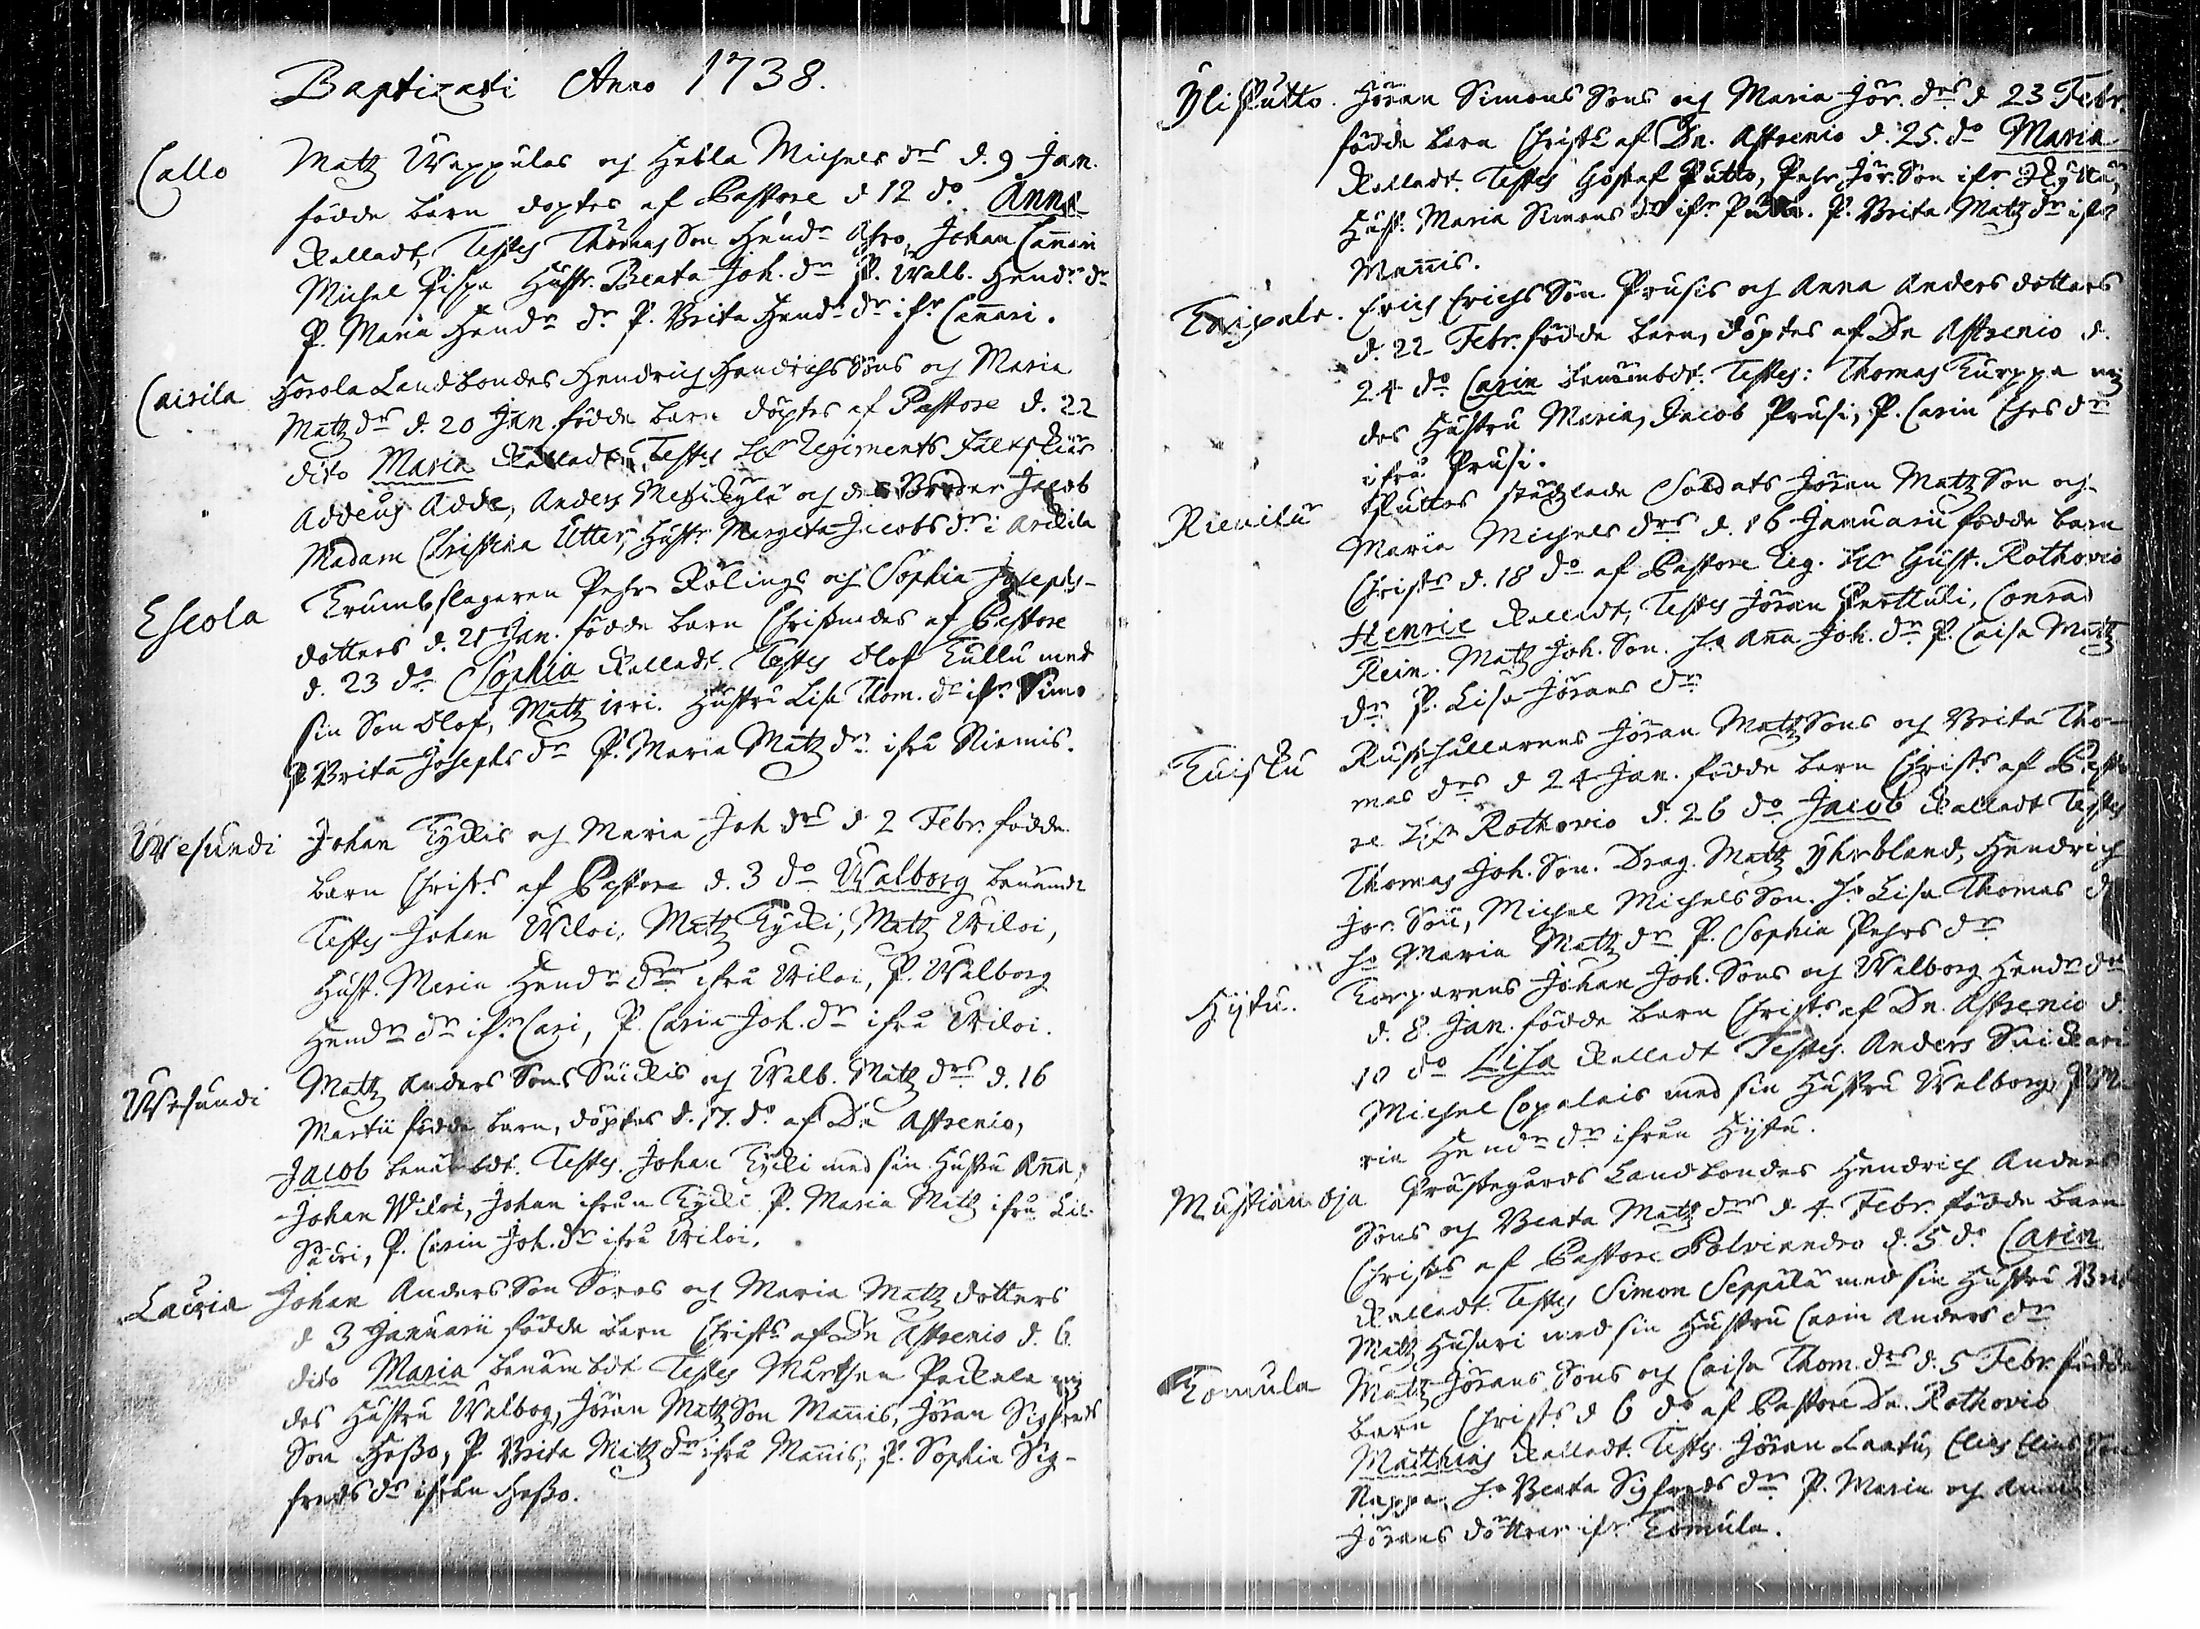 Baptizati Anno 1738.
Callo Matz Wappulas och Hebla Michels drs d. 9 Jan.
födde barn döptes af Pastore d 12 do. Anna
kalladt, Testes Thomas Son Hendr Ahro, Johan Cannari
Michel Pispa Hustr. Beata Joh. dr P. Walb. Hendr. dr
P. Maria Hendr dr P. Brita Hendr dr ifr Cannari.
Cairila Horola Landbondes Hendrich Hendrichs Sons och Maria
Matz drs d. 20 Jan. födde barn döptes af Pastore d. 22
dito Maria kalladt, Testes Regiments fältskiär
Addeus Adde, Anders och Broder Jacob
Madam Christina Utter, Hustr Margeta Jacobs dr i Arckila
Escola Trumbslagaren Pehr Rölings och Sophia Josephs-
dotters d. 21 Jan. födde barn Christnades af Pastore
d. 23 do Sophia kalladt. Testes Olof Tullu med
sin Son Olof, Matz Irri. Hustru Lisa Thom. dr ifr Simo
P Brita Josephs dr P. Maria Matz dr ifrå Niemis.
Wesundi Johan Tyckis och Maria Joh drs d 2 Febr. födde
barn Christs af Pastore d. 3 do Walborg benämdt
Testes Johan Wiloi, Matz Tycki, Matz Wiloi,
Hust. Maria Hendr dr ifrå Wiloi, P. Walborg
Hendr dr ifr Cari, P. Carin Joh. dr ifrå Wiloi.
Wesundi Matz Anders Sons Suickis och Walb. Matz drs d. 16
Martii födde barn, döptes d. 17. do af Dn Astrenio,
Jacob benämbdt. Testes. Johan Tycki med sin Hustru Anna,
Johan Wiloi, Johan ifrån Tycki P. Maria Matz ifrå
P. Carin Joh. dr ifrå Wiloi.
Lauria Johan Anders Son Soros och Maria Matz dotters
d 3 Januarii födde barn Christs af Dn Astrenio d. 6
dito Maria benämbdt Testes Mårthen Packala och
des Hustru Walborg, Jöran Matz Son Mannis, Jöran Sigfreds
Son Hesso, P. Brita Matz dr ifrå Mannis, P. Sophia Sig-
freds dr ifrån Hesso.
Yli Putto. Jöran Simons Sons och Maria Jör. drs d 23 Febr.
födde barn Christs af Dn. Astrenio d. 25. do Maria
kalladt. Testes Gostaf Putto, Pehr Jör. Son ifr
Hust. Maria Simons dr ifr P. Brita Matz dr ifrå
Mannis.
Taipale. Erich Erichs Son Prusis och Anna Anders dotters
d. 22 Febr. födde barn, döptes af Dn Astrenio d.
24 do Carin benämbdt. Testes: Thomas Kurppa och
des Hustru Maria, Jacob Prusi, P. Carin dr
ifrå Prusi.
Rienilä Puttos Soldats Jöran Matz Son och
Maria Michels drs d. 16 Januarii födde barn
Christs d. 18 do af Pastore Rothovio
Henric kalladt, Testes Jöran Perttuli, Conrad
Rein. Matz Joh. Son. H. Anna Joh. dr P. Caisa Matz
dr P. Lisa Jörans dr
Tuisku Rusthållarens Jöran Matz Sons och Brita Tho-
mas drs d 24 Jan. födde barn Christs af Pasto
re Rothovio d. 26 do Jacob kalladt Testes
Thomas Joh. Son. Drag. Matz Hendrich
Jör. Son, Michel Michels Son. H. Lisa Thomas dr
H. Maria Matz dr P. Sophia Pehrs dr
Hytu. Torparens Johan Joh. Sons och Walborg Hendr drs
d. 8. Jan. födde barn Christs af Dn. Astrenio d.
10 do Lisa kalladt Testes. Anders Suickari
Michel Copalais med sin Hustru Walborg, P. Ma
ria Hendr dr ifrån Hytu.
Mustianoja Prästegårds Landbondes Hendrich Anders
Sons och Beata Matz drs d. 4. Febr. födde barn
Christs af Pastore Polviandro d. 5 do Carin
kalladt. Testes Simon Seppälä med sin Hustru Brit
Matz Husari med sin Hustru Carin Anders dr
Tomula Matz Jörans Sons och Caisa Thom. drs d. 5 Febr. födde
barn Christs d 6 do af Pastore Dn. Rothovio
Matthias kalladt. Testes. Jöran Laatu, Elias Elias Son
Nappa, H. Beata Sigfreds dr P. Maria och Anna
Jörans döttrar ifr. Tomula.